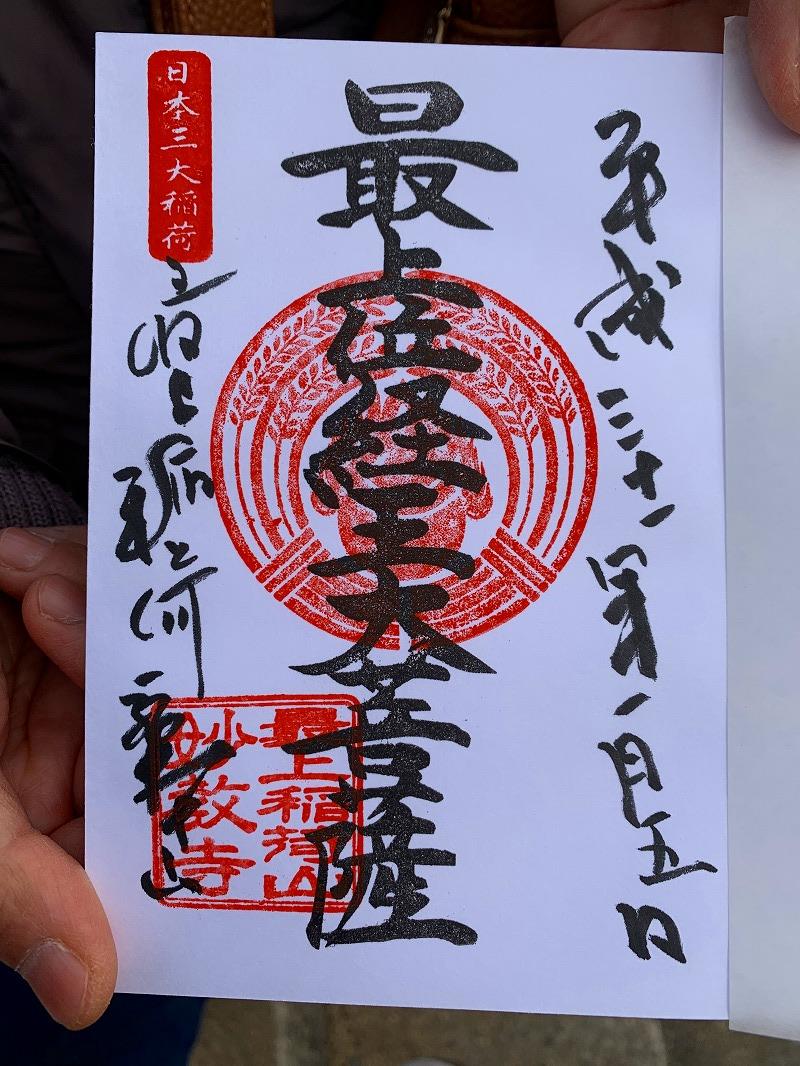 平成三十一年一月五日
最上位経王大菩薩
日本三大稲荷
稲荷 本山
最上稲荷山
妙教寺